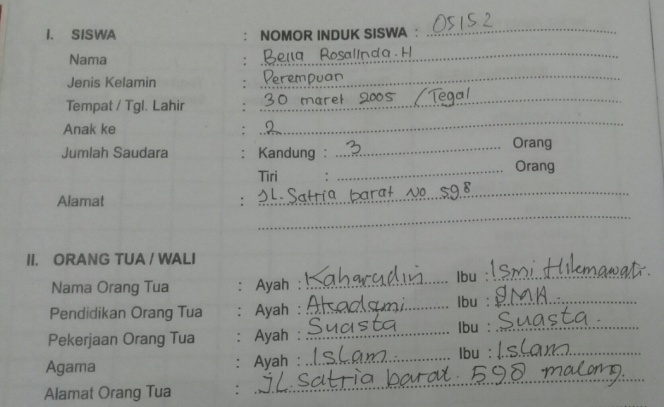 I. SISWA : NOMOR INDUK SISWA : 05152
Nama : Bella Rosalinda.H
Jenis Kelamin : Perempuan
Tempat / Tgl. Lahir : 30 maret 2005 / Tegal
Anak ke : 2
Jumlah Saudara : Kandung : 3 Orang
Tiri : Orang
Alamat : JL. Satria barat No 598
II. ORANG TUA / WALI
Nama Orang Tua : Ayah : Kaharudin Ibu : Ismi Hikmawati.
Pendidikan Orang Tua : Ayah : Akademi Ibu : SMA.
Pekerjaan Orang Tua : Ayah : Suasta Ibu : Suasta.
Agama : Ayah : Islam. Ibu : Islam
Alamat Orang Tua : JL. Satria barat. 598 malang.